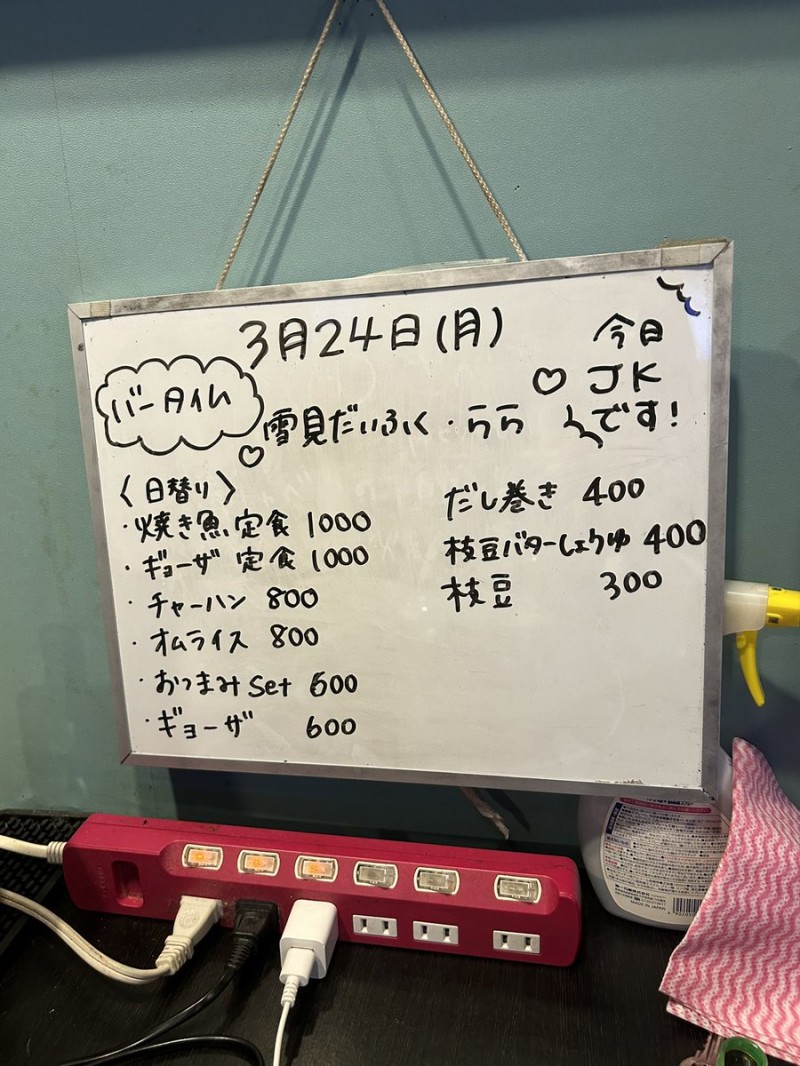 3月24日(月)
今日
♡ JK
です!
バータイム
♡雪見だいふく・らら
〈日替り〉
・焼き魚定食 1000
・ギョーザ定食 1000
・チャーハン 800
・オムライス 800
・おつまみset 600
・ギョーザ 600
だし巻き 400
枝豆バターしょうゆ 400
枝豆 300
MADE IN JAPAN